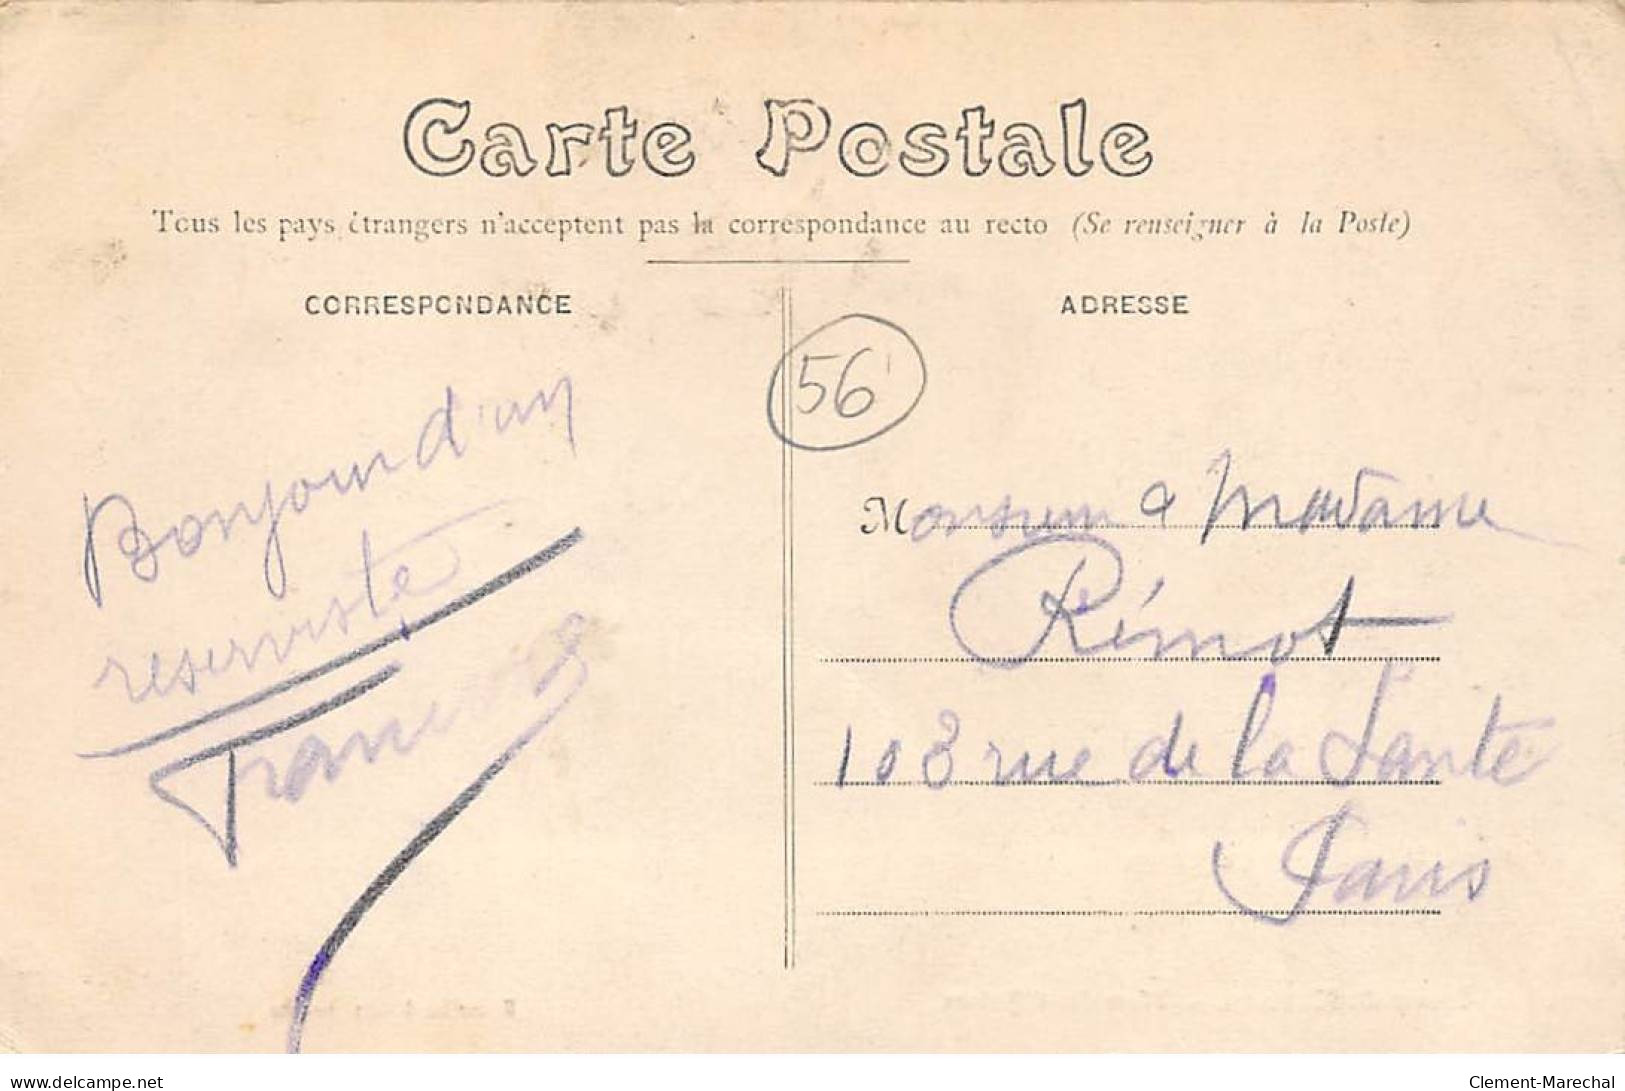 Carte Postale
Tous les pays étrangers n'acceptent pas la correspondance au recto (Se renseigner à la Poste)
CORRESPONDANCE
ADRESSE
56
Bonjour d'un
reserviste
Monsieur & Madame
Rémot
103 rue de la Santé
Paris
www.delcampe.net
Clement-Marechal